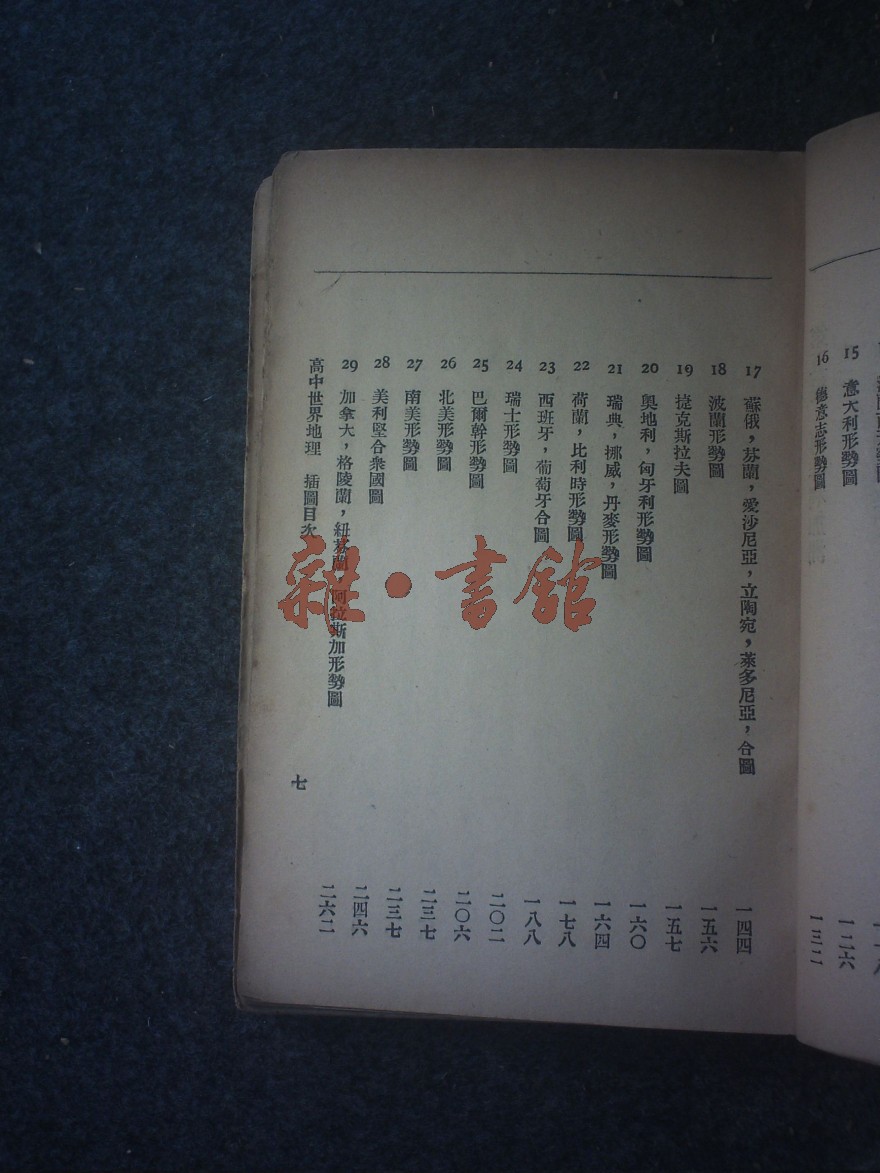 15 意大利形勢圖 一二六
16 德意志形勢圖 一三二
17 蘇俄，芬蘭，愛沙尼亞，立陶宛，萊多尼亞，合圖 一四四
18 波蘭形勢圖 一五六
19 捷克斯拉夫圖 一五七
20 奧地利，匈牙利形勢圖 一六〇
21 瑞典，挪威，丹麥形勢圖 一六四
22 荷蘭，比利時形勢圖 一七八
23 西班牙，葡萄牙合圖 一八八
24 瑞士形勢圖 二〇二
25 巴爾幹形勢圖 二〇六
26 北美形勢圖 二三七
27 南美形勢圖 二三七
28 美利堅合衆國圖 二四六
29 加拿大，格陵蘭，紐芬蘭，阿拉斯加形勢圖 二六二
高中世界地理 插圖目次 七
雜·書館